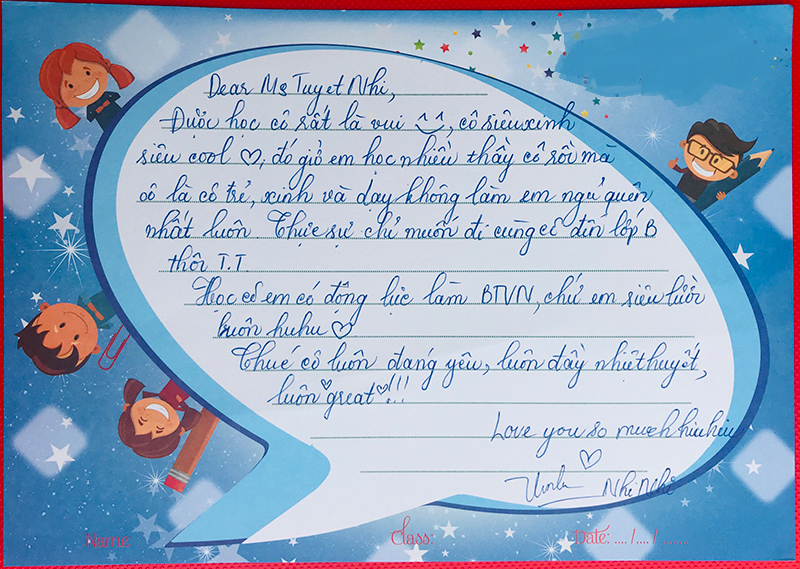 Dear Ms Tuyet Nhi,
Được học cô rất là vui ^^, cô siêu xinh
siêu cool ♡, đó giờ em học nhiều thầy cô rồi mà
cô là cô trẻ, xinh và dạy không làm em ngủ quên
nhất luôn. Thực sự chỉ muốn đi cùng cô đến lớp B
thôi T.T
Học cô em có động lực làm BTVN, chứ em siêu lười
luôn huhu ♡
Chúc cô luôn đáng yêu, luôn đầy nhiệt huyết,
luôn great!!!
Love you so much hiuhiu
♡
Nhi Nhi
Name: Class: Date: .... /.... / .......